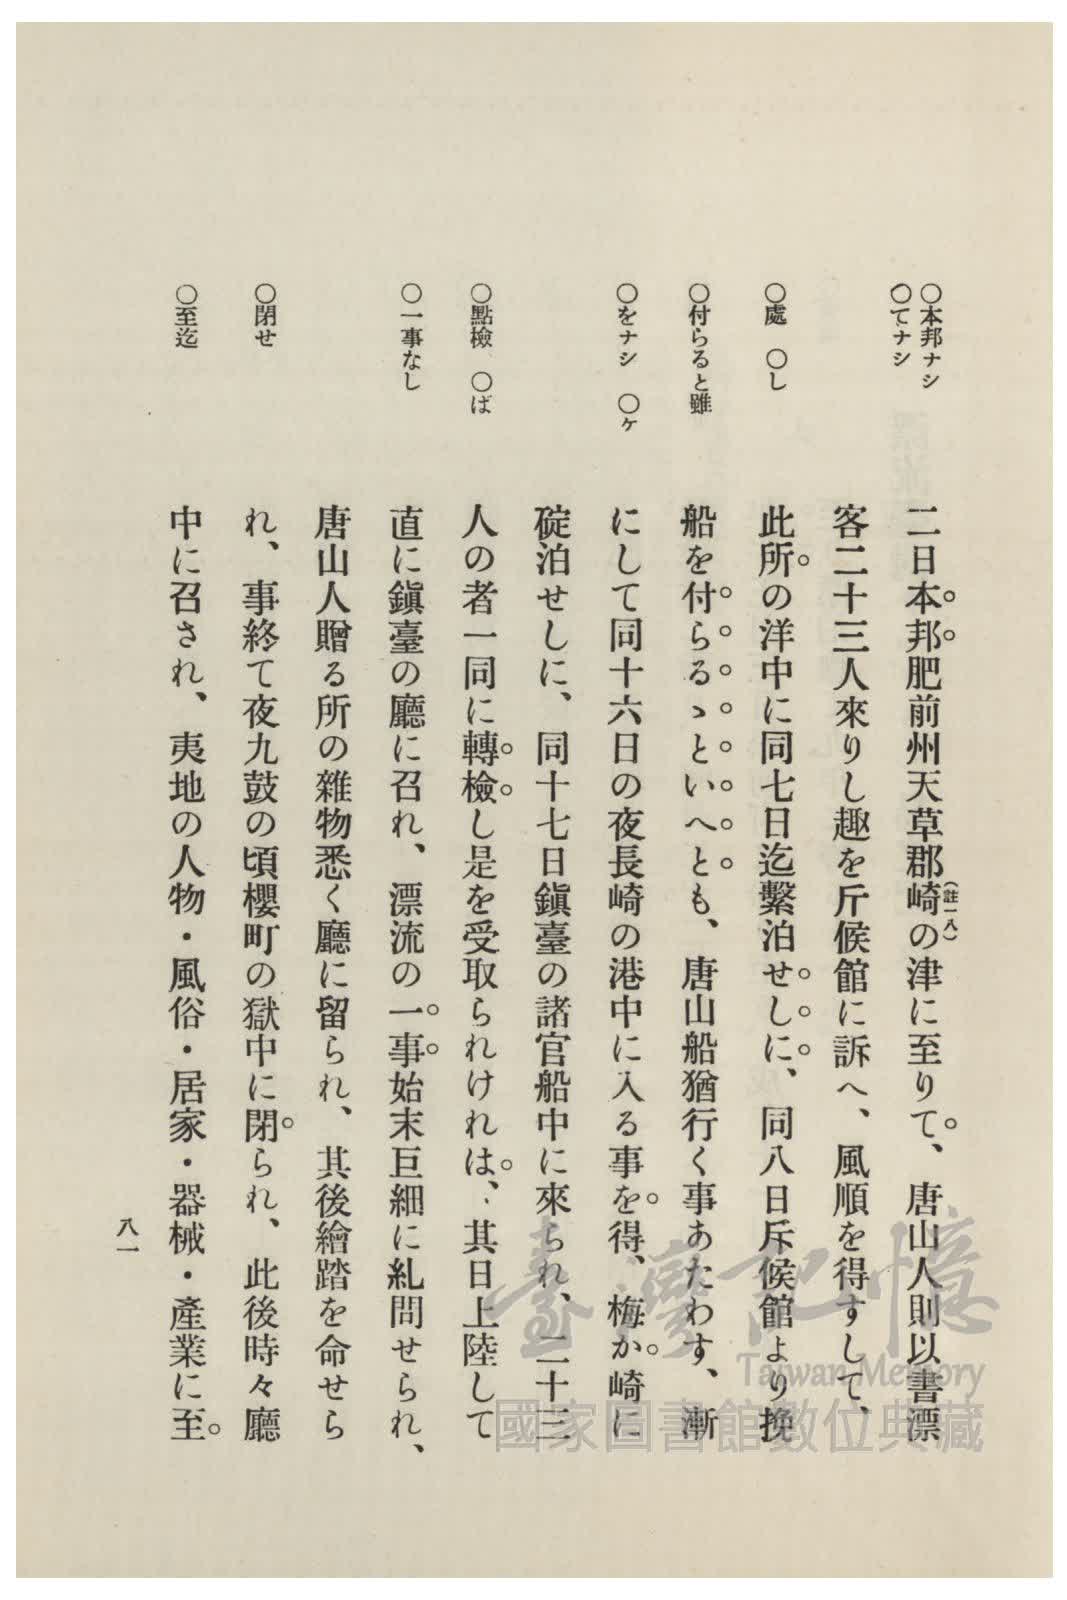 ○本邦ナシ
○てナシ
○處　○し
○付らると雖
○をナシ　○ケ
○點檢　○ば
○一事なし
○閉せ
○至迄
二日本邦肥前州天草郡崎の津に至りて、唐山人則以書漂
(註一八)
客二十三人來りし趣を斤候館に訴へ、風順を得すして、
此所の洋中に同七日迄繫泊せしに、同八日斥候館より挽
船を付らるゝといへとも、唐山船猶行く事あたわす、漸
にして同十六日の夜長崎の港中に入る事を得、梅か崎に
碇泊せしに、同十七日鎭臺の諸官船中に來られ、二十三
人の者一同に轉檢し是を受取られけれは、其日上陸して
直に鎭臺の廳に召れ、漂流の一事始末巨細に糺問せられ、
唐山人贈る所の雜物悉く廳に留られ、其後繪踏を命せら
れ、事終て夜九鼓の頃櫻町の獄中に閉られ、此後時々廳
中に召され、夷地の人物・風俗・居家・器械・產業に至
八一
臺灣記憶
Taiwan Memory
國家圖書館數位典藏